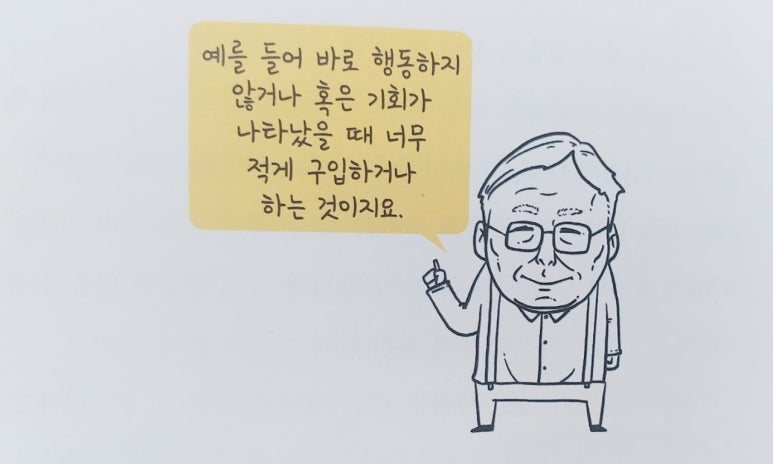 예를 들어 바로 행동하지
않거나 혹은 기회가
나타났을 때 너무
적게 구입하거나
하는 것이지요.